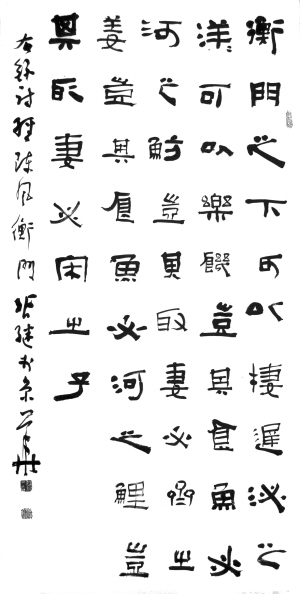 衡門之下可以棲遲泌之
洋〻可以樂饑豈其食魚必
河之魴豈其取妻必齊之
姜豈其食魚必河之鯉豈
其取妻必宋之子
右錄詩經陳風衡門張繼於京